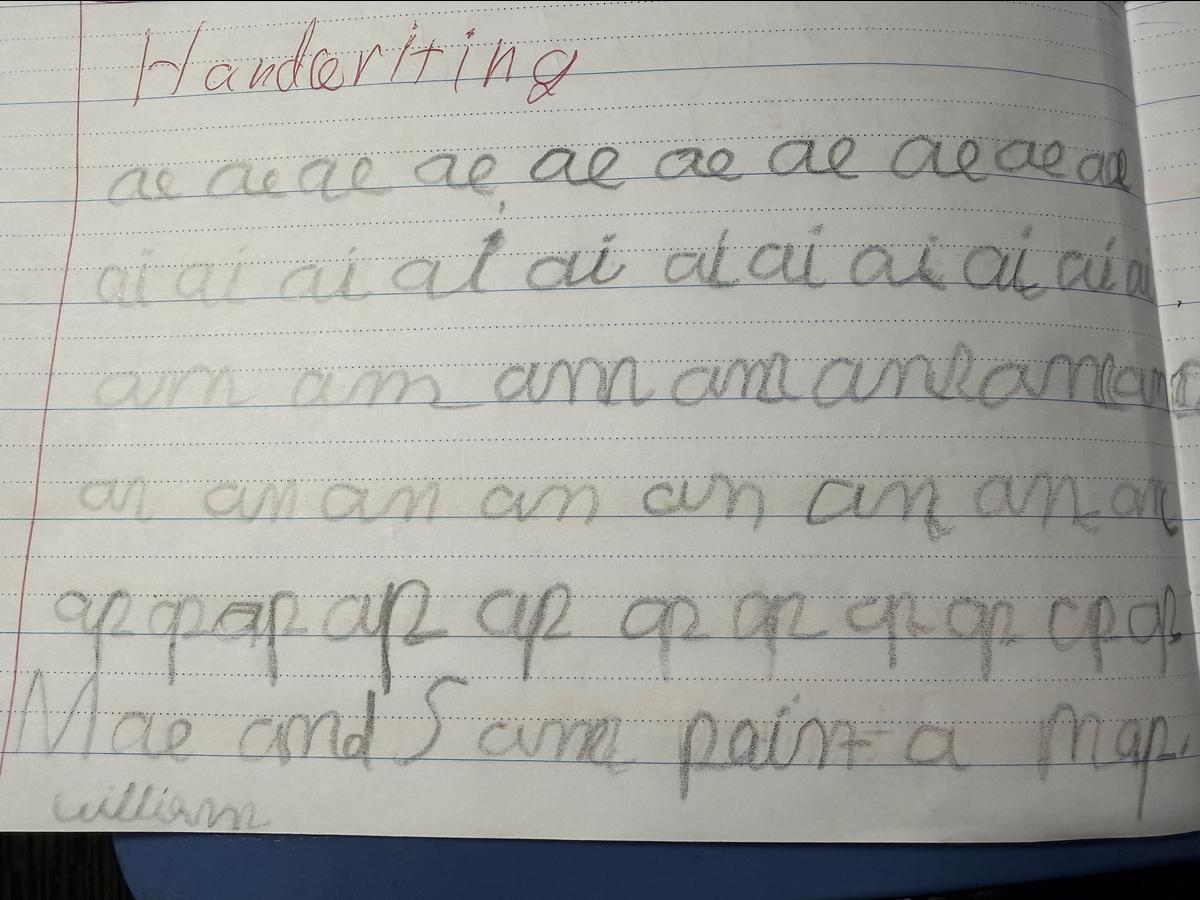 Handwriting
ae ae ae ae ae ae ae ae ae ae
ai ai ai ai ai ai ai ai ai ai ai
am am am am am am am
an an an an an an an an
ap ap ap ap ap ap ap ap ap ap ap
Mae and Sam paint a map.
william